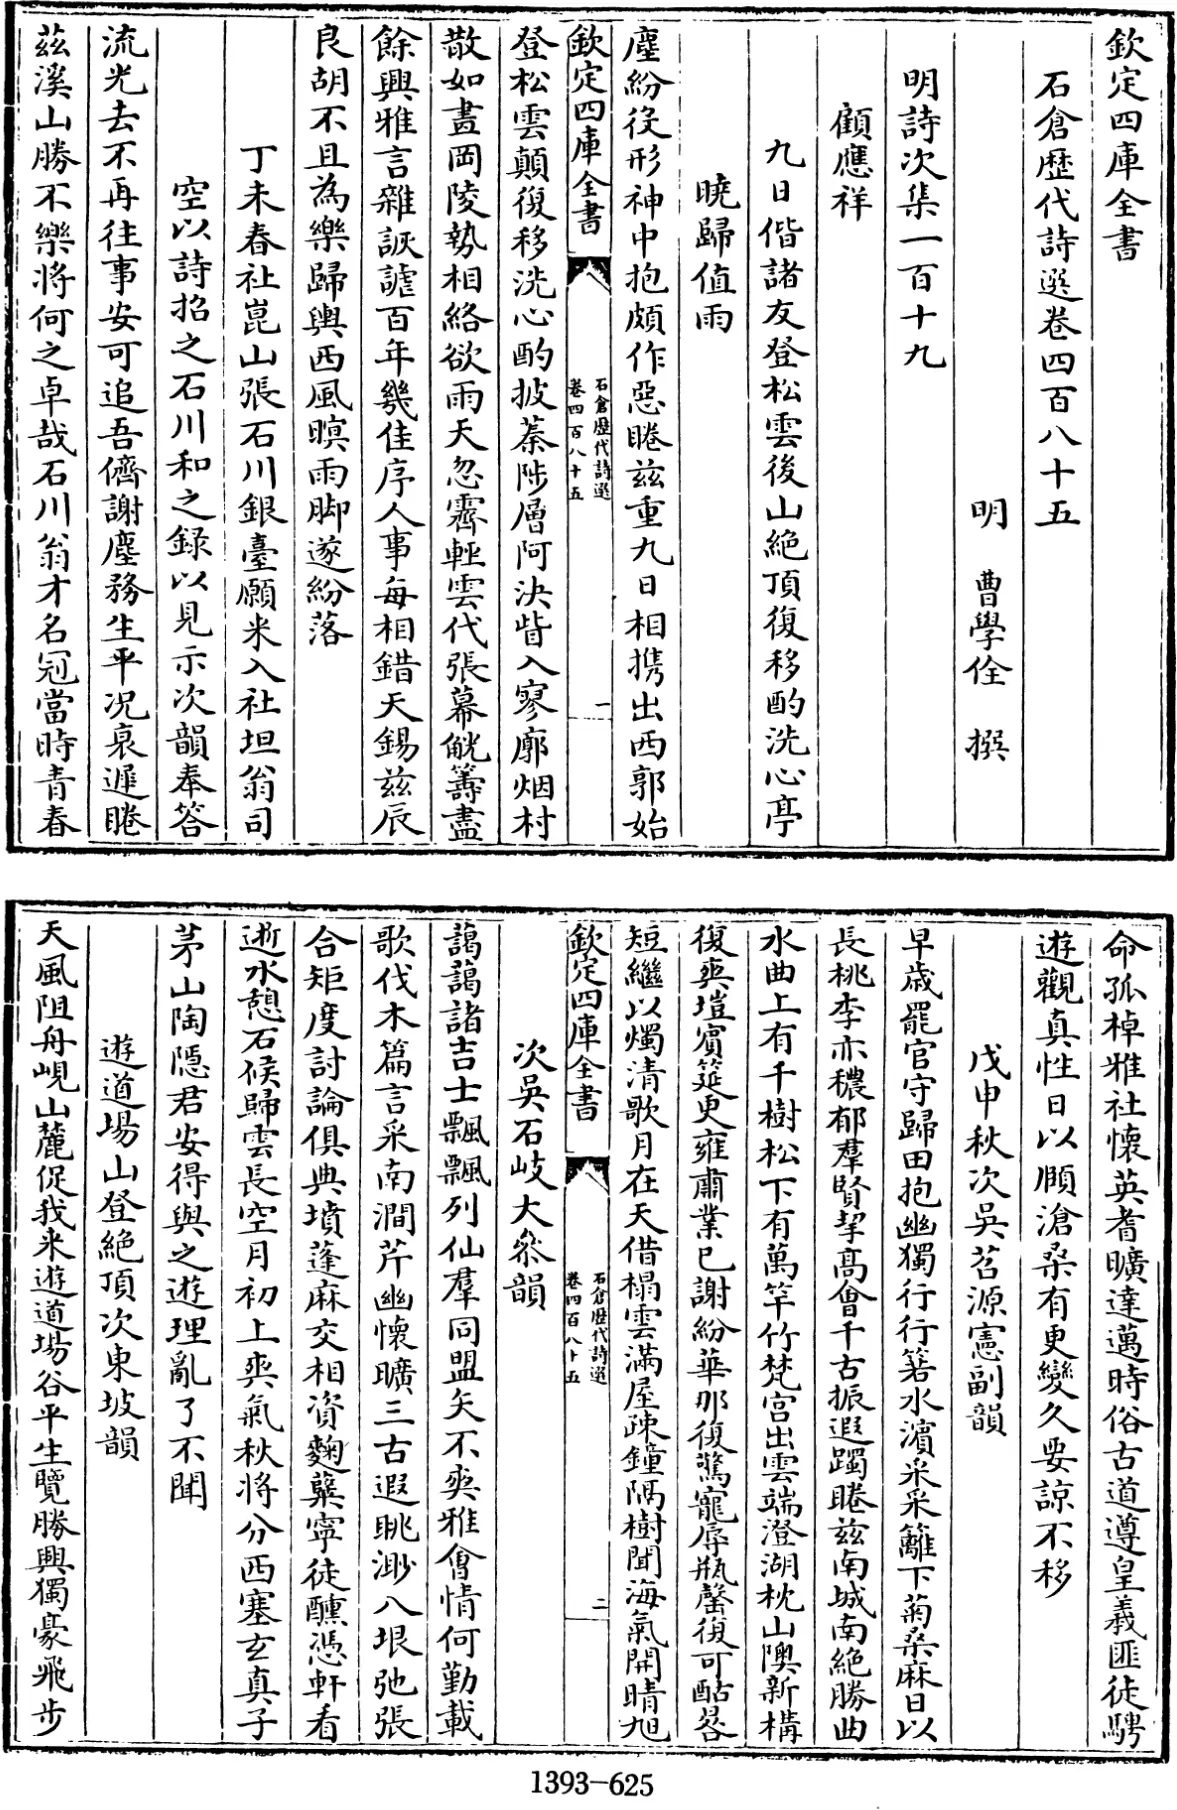 欽定四庫全書
石倉歴代詩選卷四百八十五
明　曹學佺　撰
明詩次集一百十九
顧應祥
九日偕諸友登松雲後山絶頂復移酌洗心亭
曉歸值雨
塵紛役形神中抱頗作惡睠兹重九日相携出西郭始
欽定四庫全書
石倉歴代詩選
卷四百八十五
一
登松雲顛復移洗心酌披蓁陟層阿決眥入寥廓烟村
散如畫岡陵勢相絡欲雨天忽霽輕雲代張幕觥籌盡
餘興雅言雜詼謔百年幾佳序人事每相錯天錫兹辰
良胡不且為樂歸輿西風暝雨脚遂紛落
丁未春社崑山張石川銀臺願來入社坦翁司
空以詩招之石川和之録以見示次韻奉答
流光去不再往事安可追吾儕謝塵務生平况衰遲睠
兹溪山勝不樂將何之卓哉石川翁才名冠當時青春
命孤棹雅社懷英耆曠達邁時俗古道遵皇義匪徒騁
遊觀真性日以頤滄桑有更變久要諒不移
戊申秋次吳苕源憲副韻
早歳罷官守歸田抱幽獨行行箬水濱采采籬下菊桑麻日以
長桃李亦穠郁羣賢挈高會千古振遐躅睠兹南城南絶勝曲
水曲上有千樹松下有萬竿竹梵宫出雲端澄湖枕山隩新構
復爽塏賓筵更雍肅業已謝紛華那復驚寵辱瓶罄復可酤晷
短繼以燭清歌月在天借榻雲滿屋疎鐘隔樹聞海氣開晴旭
欽定四庫全書
石倉歴代詩選
卷四百八十五
二
次吳石岐大叅韻
藹藹諸吉士飄飄列仙羣同盟矢不爽雅會情何勤載
歌伐木篇言采南澗芹幽懷曠三古遐眺渺八垠弛張
合矩度討論俱典墳蓬麻交相資麴糵寧徒醺憑軒看
逝水憩石候歸雲長空月初上爽氣秋將分西塞玄真子
茅山陶隠君安得與之遊理亂了不聞
遊道場山登絶頂次東坡韻
天風阻舟峴山麓促我來遊道場谷平生覽勝興獨豪飛步
1393-625